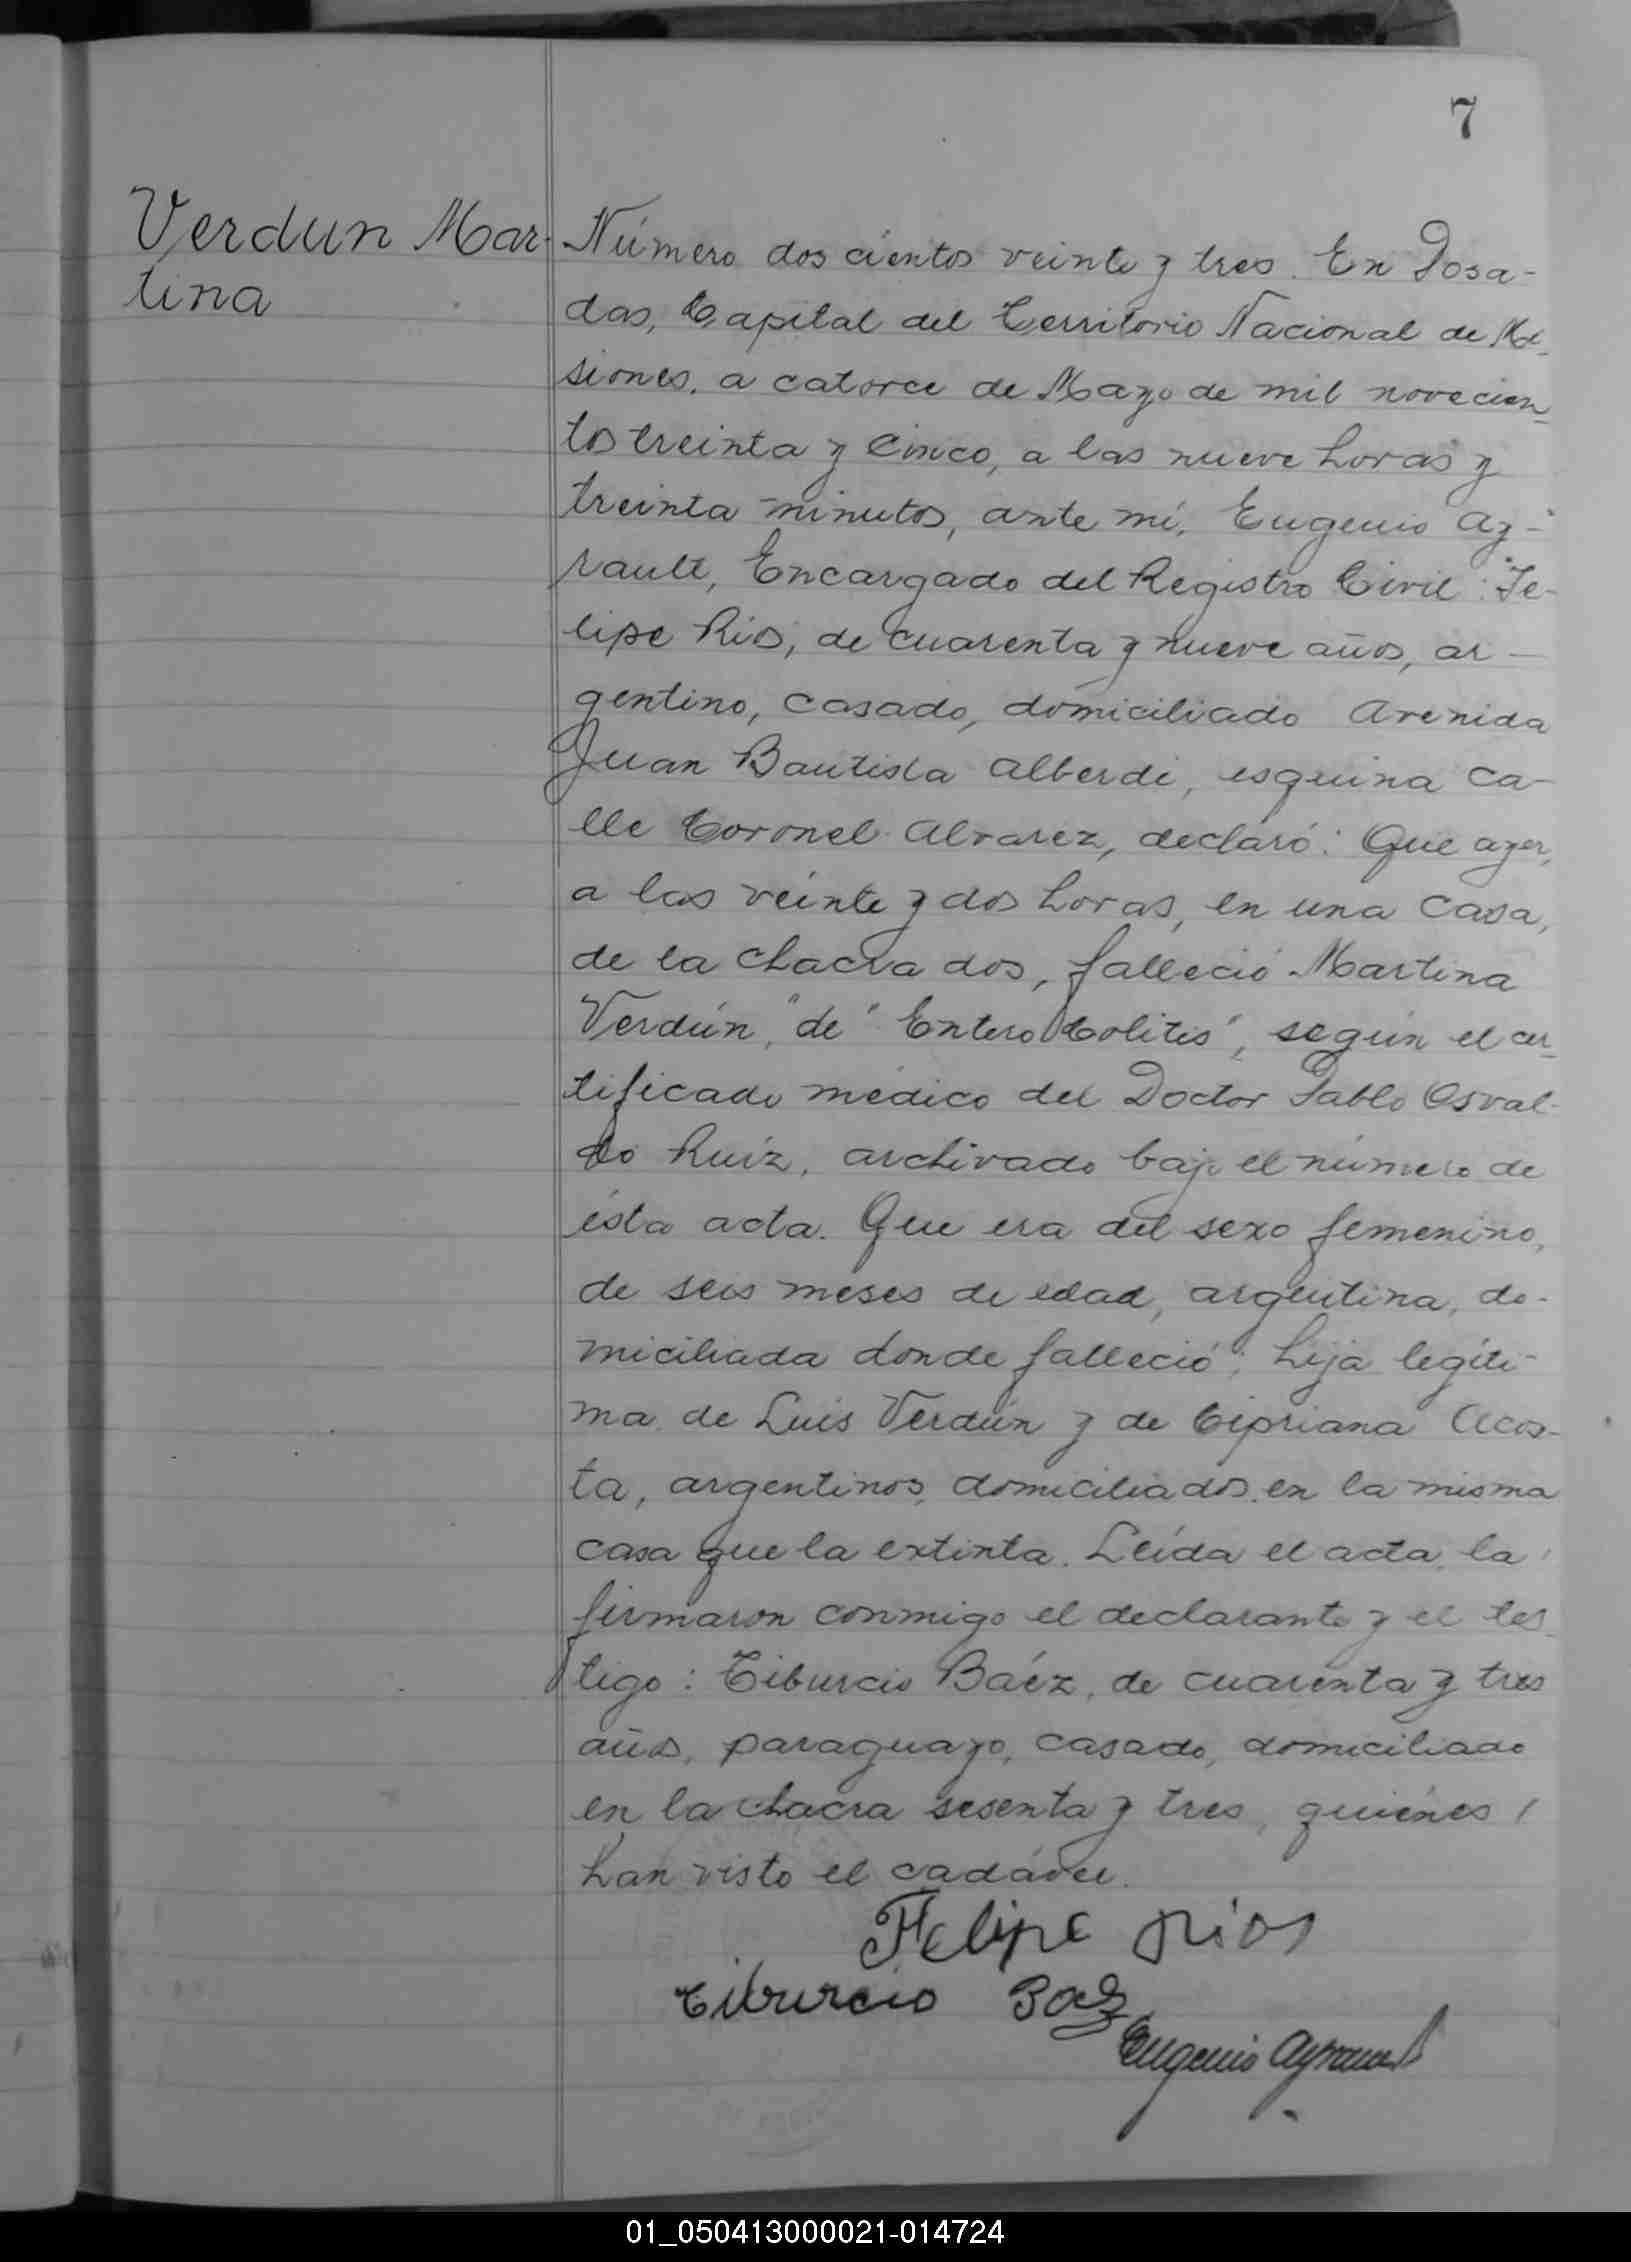 7
Verdun Mar-
tina
Número dos cientos veinte y tres. En Posa-
das, Capital del Territorio Nacional de Mi-
siones, a catorce de Mayo de mil novecien-
tos treinta y cinco, a las nueve horas y
treinta minutos, ante mí, Eugenio Ay-
rault, Encargado del Registro Civil: Fe-
lipe Rios, de cuarenta y nueve años, ar-
gentino, casado, domiciliado Avenida
Juan Bautista Alberdi, esquina Ca-
lle Coronel Alvarez, declaró: Que ayer,
a las veinte y dos horas, en una casa,
de la chacra dos, falleció Martina
Verdún, "de" Entero Colitis", según el cer-
tificado médico del Doctor Pablo Osval-
do Ruíz, archivado bajo el número de
ésta acta. Que era del sexo femenino,
de seis meses de edad, argentina, do-
miciliada donde falleció; hija legíti-
ma de Luis Verdún y de Cipriana Acos-
ta, argentinos, domiciliados en la misma
casa que la extinta. Leída el acta, la
firmaron conmigo el declarante y el tes-
tigo: Tiburcio Báez, de cuarenta y tres
años, paraguayo, casado, domiciliado
en la chacra sesenta y tres, quiénes
han visto el cadáver.
Felipe Rios
Tiburcio Baez
Eugenio Ayrault
01_050413000021-014724